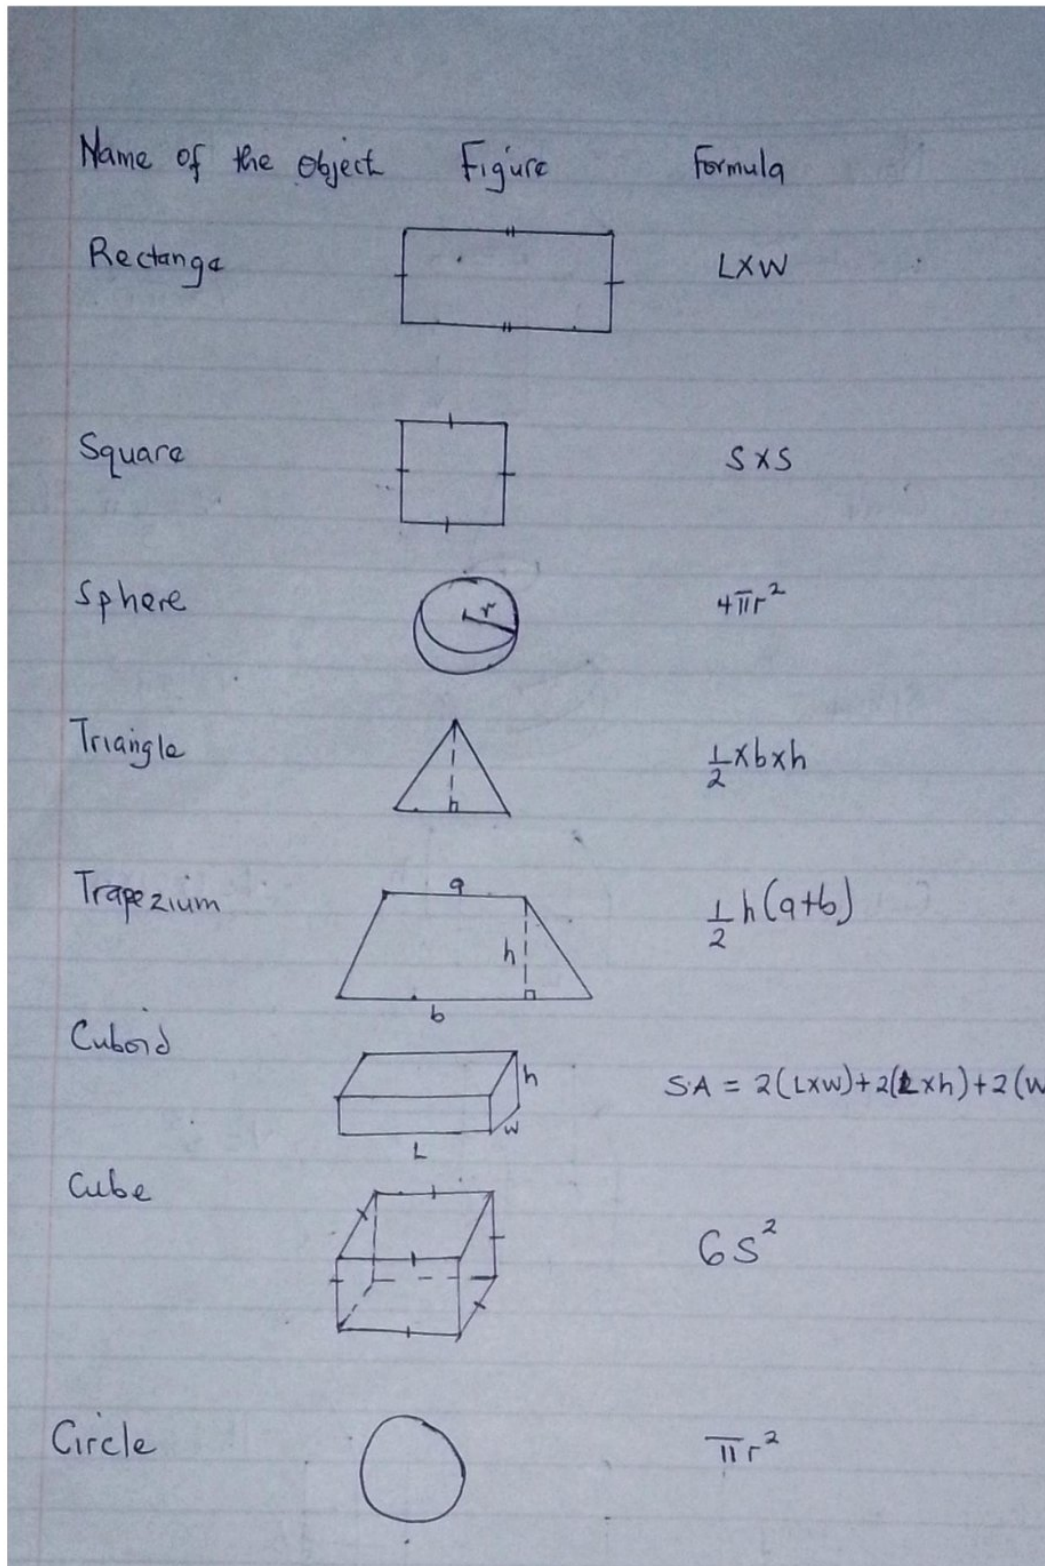 Name of the Object Figure Formula
Rectange L×W
Square S×S
Sphere r 4πr²
Triangle h ½×b×h
Trapezium a h b ½h(a+b)
Cuboid h W L SA = 2(L×W)+2(L×h)+2(W
Cube 6S²
Circle πr²